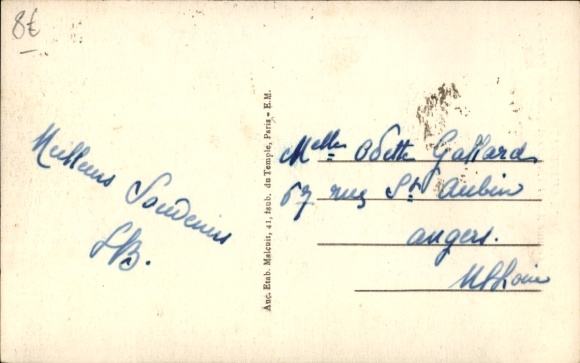 8€
Meilleurs Souvenirs
SB.
Anc. Etab. Malcuit, 41, faub. du Temple, Paris - E.M.
Melle Odette Gallard
67 rue St Aubin
Angers.
M & Loire